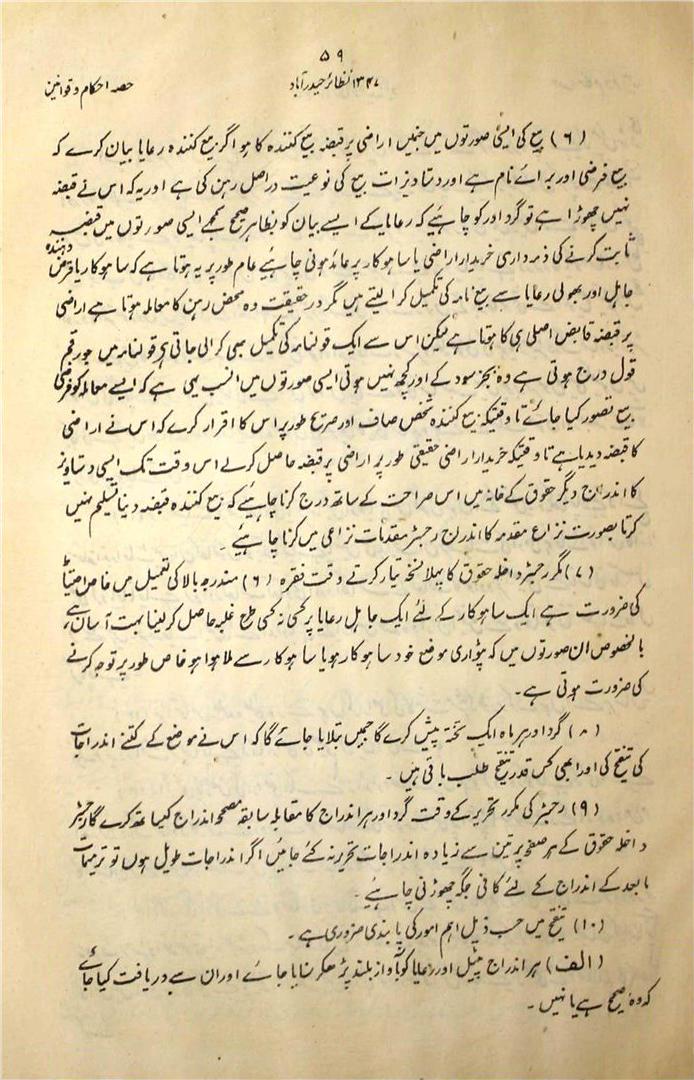 ۵۹
۱۳۴۷ نظائر حیدرآباد
حصہ احکام و قوانین
(۶) بیع کی ایسی صورتوں میں جنمیں اراضی پر قبضہ بیع کنندہ کا ہو اگر بیع کنندہ رعایا بیان کرے کہ
بیع فرضی اور برائے نام ہے اور دستاویزات بیع کی نوعیت دراصل رہن کی ہے اور یہ کہ اس نے قبضہ
نہیں چھوڑا ہے تو گرداور کو چاہئیے کہ رعایا کے ایسے بیان کو بظاہر صحیح سمجھے ایسی صورتوں میں قبضہ
ثابت کرنے کی ذمہ داری خریدار اراضی یا ساہوکار پر عائد ہونی چاہئیے عام طور پر یہ ہوتا ہے کہ ساہوکار یا قرض دہندہ
جاہل اور بھولی رعایا سے بیع نامہ کی تکمیل کرا لیتے ہیں مگر در حقیقت وہ محض رہن کا معاملہ ہوتا ہے اراضی
پر قبضہ قابض اصلی ہی کا ہوتا ہے لیکن اس سے ایک قولنامہ کی تکمیل بھی کرالی جاتی ہے قولنامہ میں جو رقم
قول درج ہوتی ہے وہ بجز سود کے اور کچھ نہیں ہوتی ایسی صورتوں میں انسب یہی ہے کہ ایسے معاملہ کو فرضی
بیع تصور کیا جائے تا وقتیکہ بیع کنندہ شخص صاف اور صریح طور پر اس کا اقرار کرے کہ اس نے اراضی
کا قبضہ دیدیا ہے تا وقتیکہ خریدار اراضی حقیقی طور پر اراضی پر قبضہ حاصل کرلے اس وقت تک ایسی دستاویز
کا اندراج دیگر حقوق کے خانہ میں اس صراحت کے ساتھ درج کرنا چاہئیے کہ بیع کنندہ قبضہ دینا تسلیم نہیں
کرتا بصورت نزاع مقدمہ کا اندراج رجسٹر مقدمات نزاعی میں کرنا چاہئیے ۔
(۷) مگر رجسٹر داخلہ حقوق کا پہلا نسخہ تیار کرتے وقت فقرہ (۶) مندرجہ بالا کی تعمیل میں خاص احتیاط
کی ضرورت ہے ایک ساہوکار کے لئے ایک جاہل رعایا پر کسی نہ کسی طرح غلبہ حاصل کرلینا بہت آسان ہے،
بالخصوص ان صورتوں میں کہ پٹواری موضع خود ساہوکار ہو یا ساہوکار سے ملا ہوا ہو خاص طور پر توجہ کرنے
کی ضرورت ہوتی ہے۔
(۸) گرداور ہر ماہ ایک تختہ پیش کرے گا جسمیں بتلایا جائے گا کہ اس نے موضع کے کتنے اندراجات
کی تنقیح کی اور ابھی کس قدر تنقیح طلب باقی ہیں ۔
(۹) رجسٹر کی مکرر تحریر کے وقت گرداور ہر اندراج کا مقابلہ سابقہ مصححہ اندراج کیساتھ کرے گا رجسٹر
داخلہ حقوق کے ہر صفحہ پر تین سے زیادہ اندراجات تحریر نہ کئے جائیں اگر اندراجات طویل ہوں تو ترمیمات
مابعد کے اندراج کے لئے کافی جگہ چھوڑنی چاہئیے ۔
(۱۰) تنقیح میں حسب ذیل اہم امور کی پابندی ضروری ہے ۔
(الف) ہر اندراج پٹیل اور رعایا کو بآواز بلند پڑھکر سنایا جائے اور ان سے دریافت کیا جائے
کہ وہ صحیح ہے یا نہیں ۔